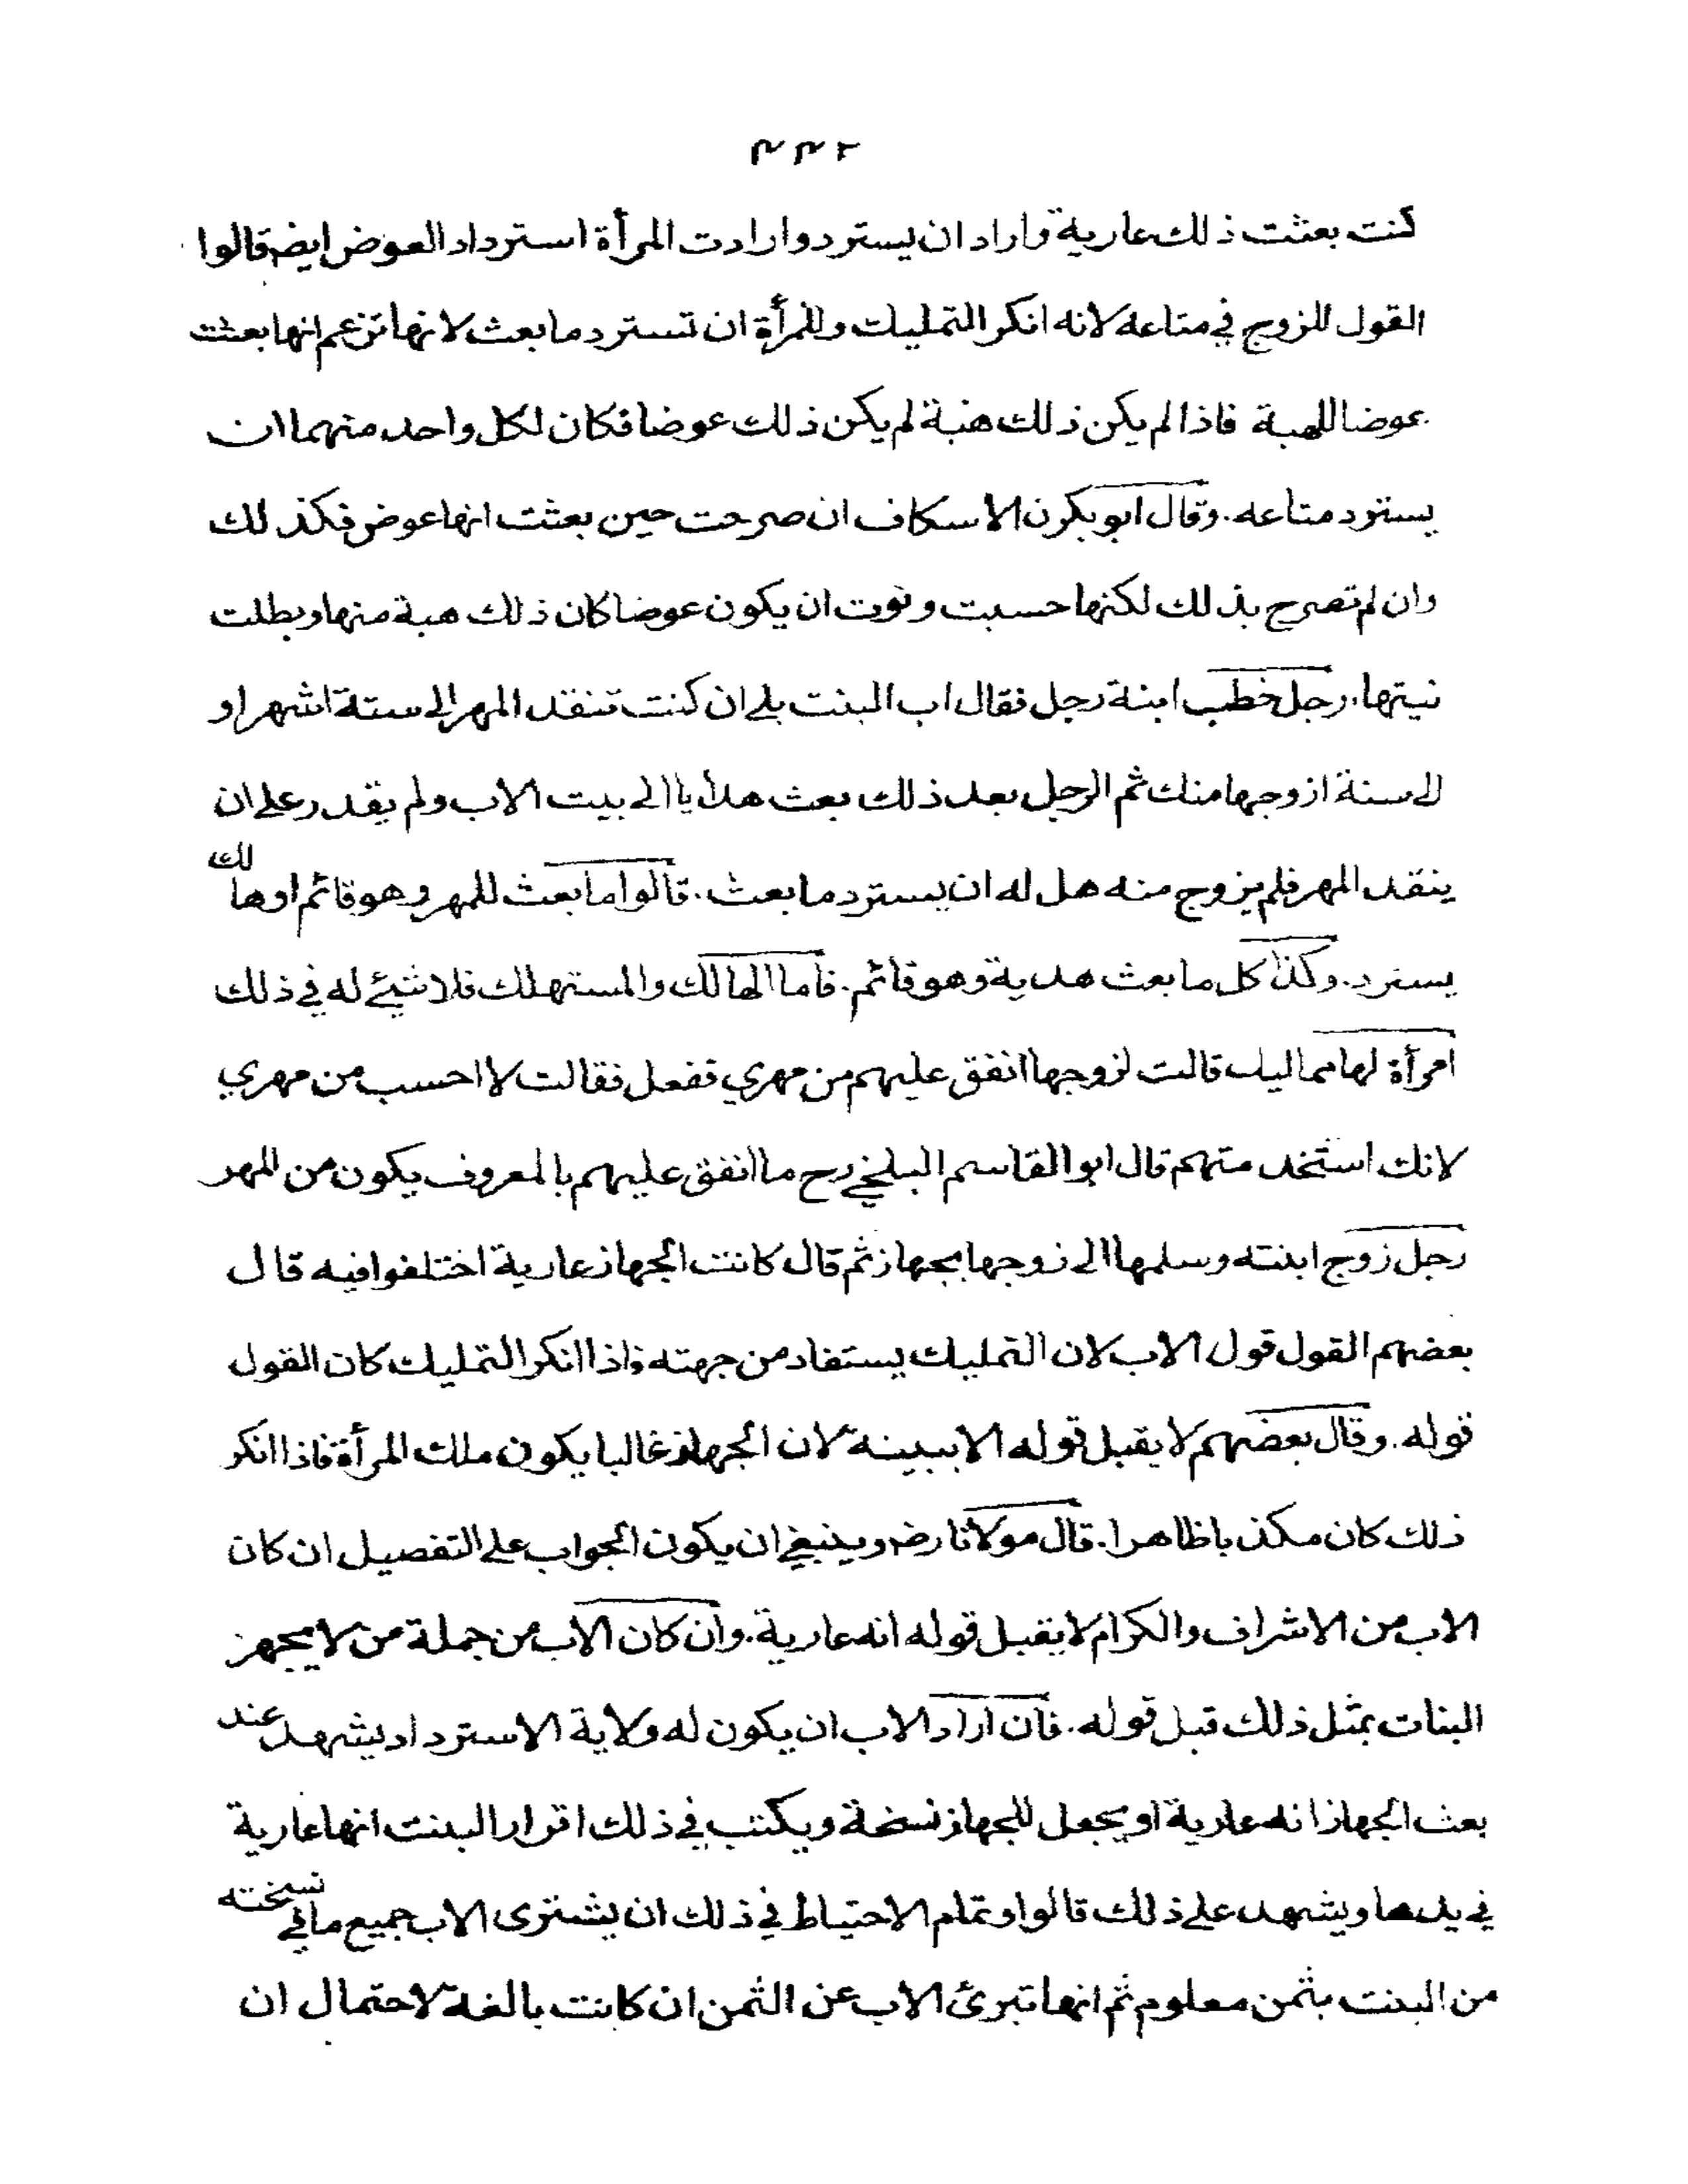 ٤٣٣
كنت بعثت ذلك عارية واراد ان يسترد وارادت المرأة استرداد العوض ايضم قالوا
القول للزوج في متاعه لانه انكر التمليك وللمرأة ان تسترد ما بعث لانها تزعم انها بعثت
عوضا للهبة فاذا لم يكن ذلك هبة لم يكن ذلك عوضا فكان لكل واحد منهما ان
يسترد متاعه. وقال ابو بكرن الاسكاف ان صرحت حين بعثت انها عوض فكذلك
وان لم تصرح بذلك لكنها حسبت ونوت ان يكون عوضا كان ذلك هبة منها وبطلت
نيتها. رجل خطب ابنة رجل فقال اب البنت بلى ان كنت تنقد المهر الى ستة اشهر او
الى سنة ازوجها منك ثم الرجل بعد ذلك بعث هدايا الى بيت الاب ولم يقدر على ان
ينقد المهر فلم يزوج منه هل له ان يسترد ما بعث. قالوا ما بعث للمهر وهو قائم او هالك
يسترد. وكذا كل ما بعث هدية وهو قائم. فاما الهالك والمستهلك فلا شيئ له في ذلك
امرأة لها مماليك قالت لزوجها انفق عليهم من مهري ففعل فقالت لا احسب من مهري
لانك استخدمتهم قال ابو القاسم البلخي رح ما انفق عليهم بالمعروف يكون من المهر
رجل زوج ابنته وسلمها الى زوجها بجهاز ثم قال كانت الجهاز عارية اختلفوا فيه قال
بعضهم القول قول الاب لان التمليك يستفاد من جهته فاذا انكر التمليك كان القول
قوله. وقال بعضهم لا يقبل قوله الا ببينة لان الجهاز غالبا يكون ملك المرأة فاذا انكر
ذلك كان مكذبا ظاهرا. قال مولانا رض وينبغي ان يكون الجواب على التفصيل ان كان
الاب من الاشراف والكرام لا يقبل قوله انه عارية. وان كان الاب من جملة من لا يجهز
البنات بمثل ذلك قبل قوله. فان اراد الاب ان يكون له ولاية الاسترداد يشهد عند
بعث الجهاز انه عارية او يجعل للجهاز نسخة ويكتب في ذلك اقرار البنت انها عارية
في يدها ويشهد على ذلك قالوا وتمام الاحتياط في ذلك ان يشترى الاب جميع ما في نسخته
من البنت بثمن معلوم ثم انها تبرئ الاب عن الثمن ان كانت بالغة لاحتمال ان